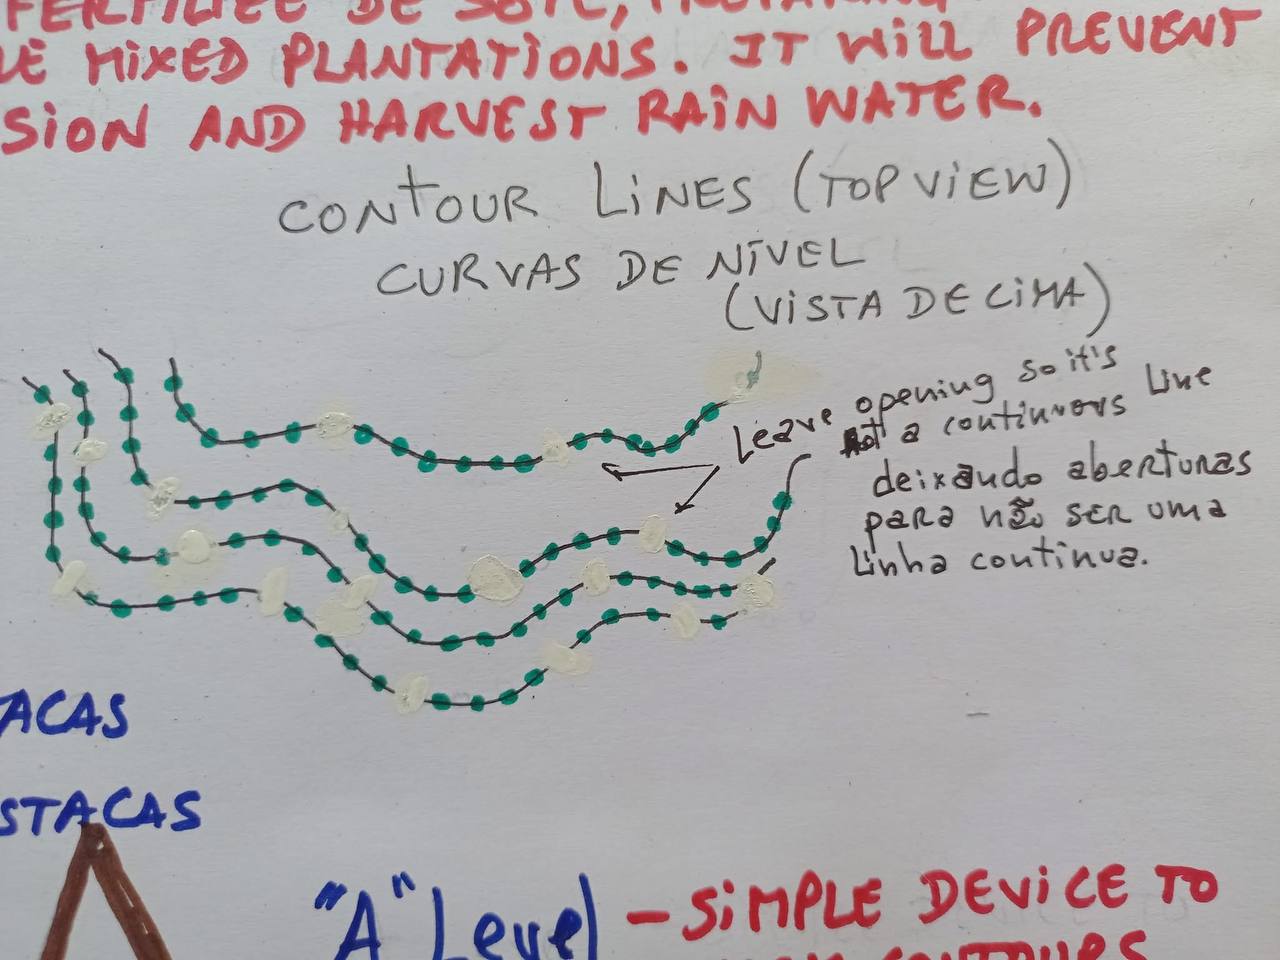 FERTILIZE DE SOIL,
LE MIXED PLANTATIONS. IT WILL PREVENT
SION AND HARVEST RAIN WATER.
CONTOUR LINES (TOP VIEW)
CURVAS DE NÍVEL
(VISTA DE CIMA)
Leave opening so it's
not a continuous Line
deixando aberturas
para não ser uma
Linha continua.
ACAS
STACAS
"A" Level - SIMPLE DEVICE TO
CONTOURS